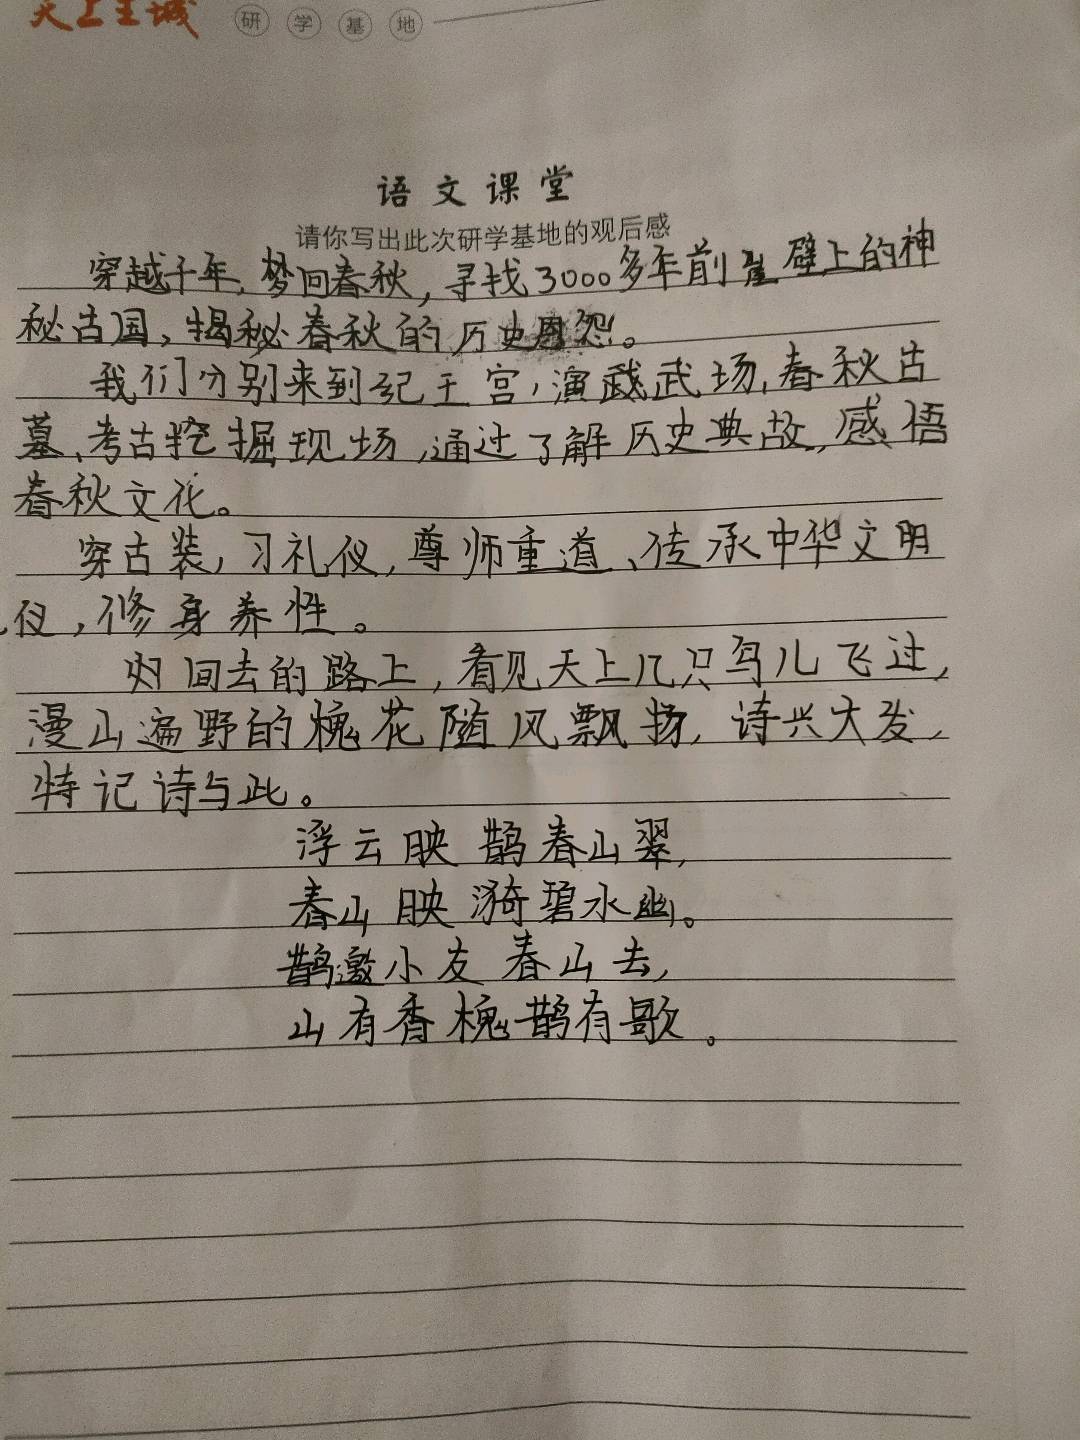 天上王城 研学基地
语文课堂
请你写出此次研学基地的观后感
穿越千年,梦回春秋,寻找3000多年前崖壁上的神
秘古国,揭秘春秋的历史恩怨。
我们分别来到纪王宫,演武场,春秋古
墓、考古挖掘现场,通过了解历史典故,感悟
春秋文化。
穿古装,习礼仪,尊师重道、传承中华文明
仪,修身养性。
归回去的路上,看见天上几只鸟儿飞过,
漫山遍野的槐花随风飘扬,诗兴大发,
特记诗与此。
浮云映鹊春山翠,
春山映漪碧水幽。
鹊邀小友春山去,
山有香槐鹊有歌。